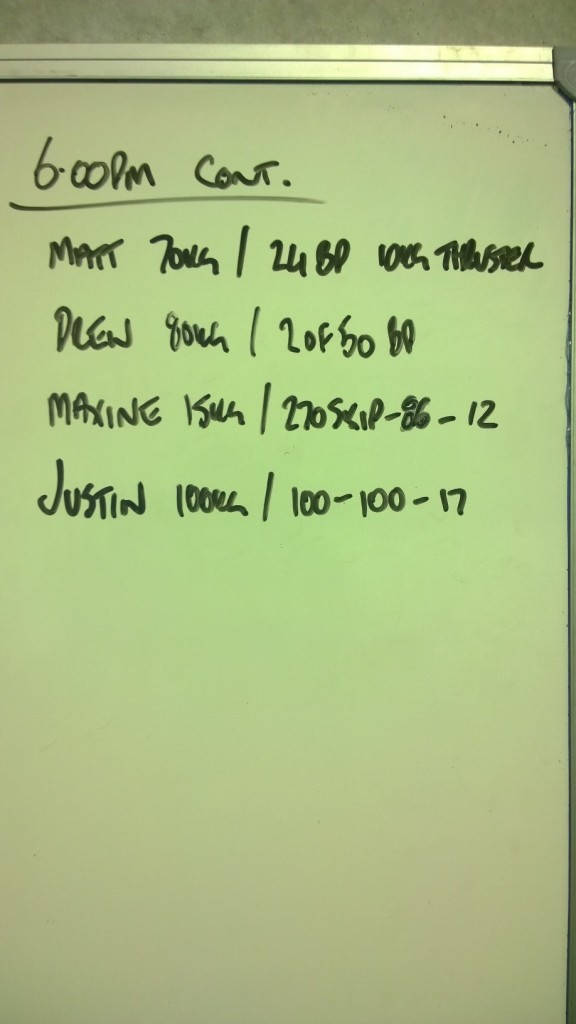 6.00PM CONT.
MATT 70KG / 24 BP 10KG THRUSTER
DREW 80KG / 2 OF 50 BP
MAXINE 15KG / 270 SKIP-86-12
JUSTIN 100KG / 100-100-17